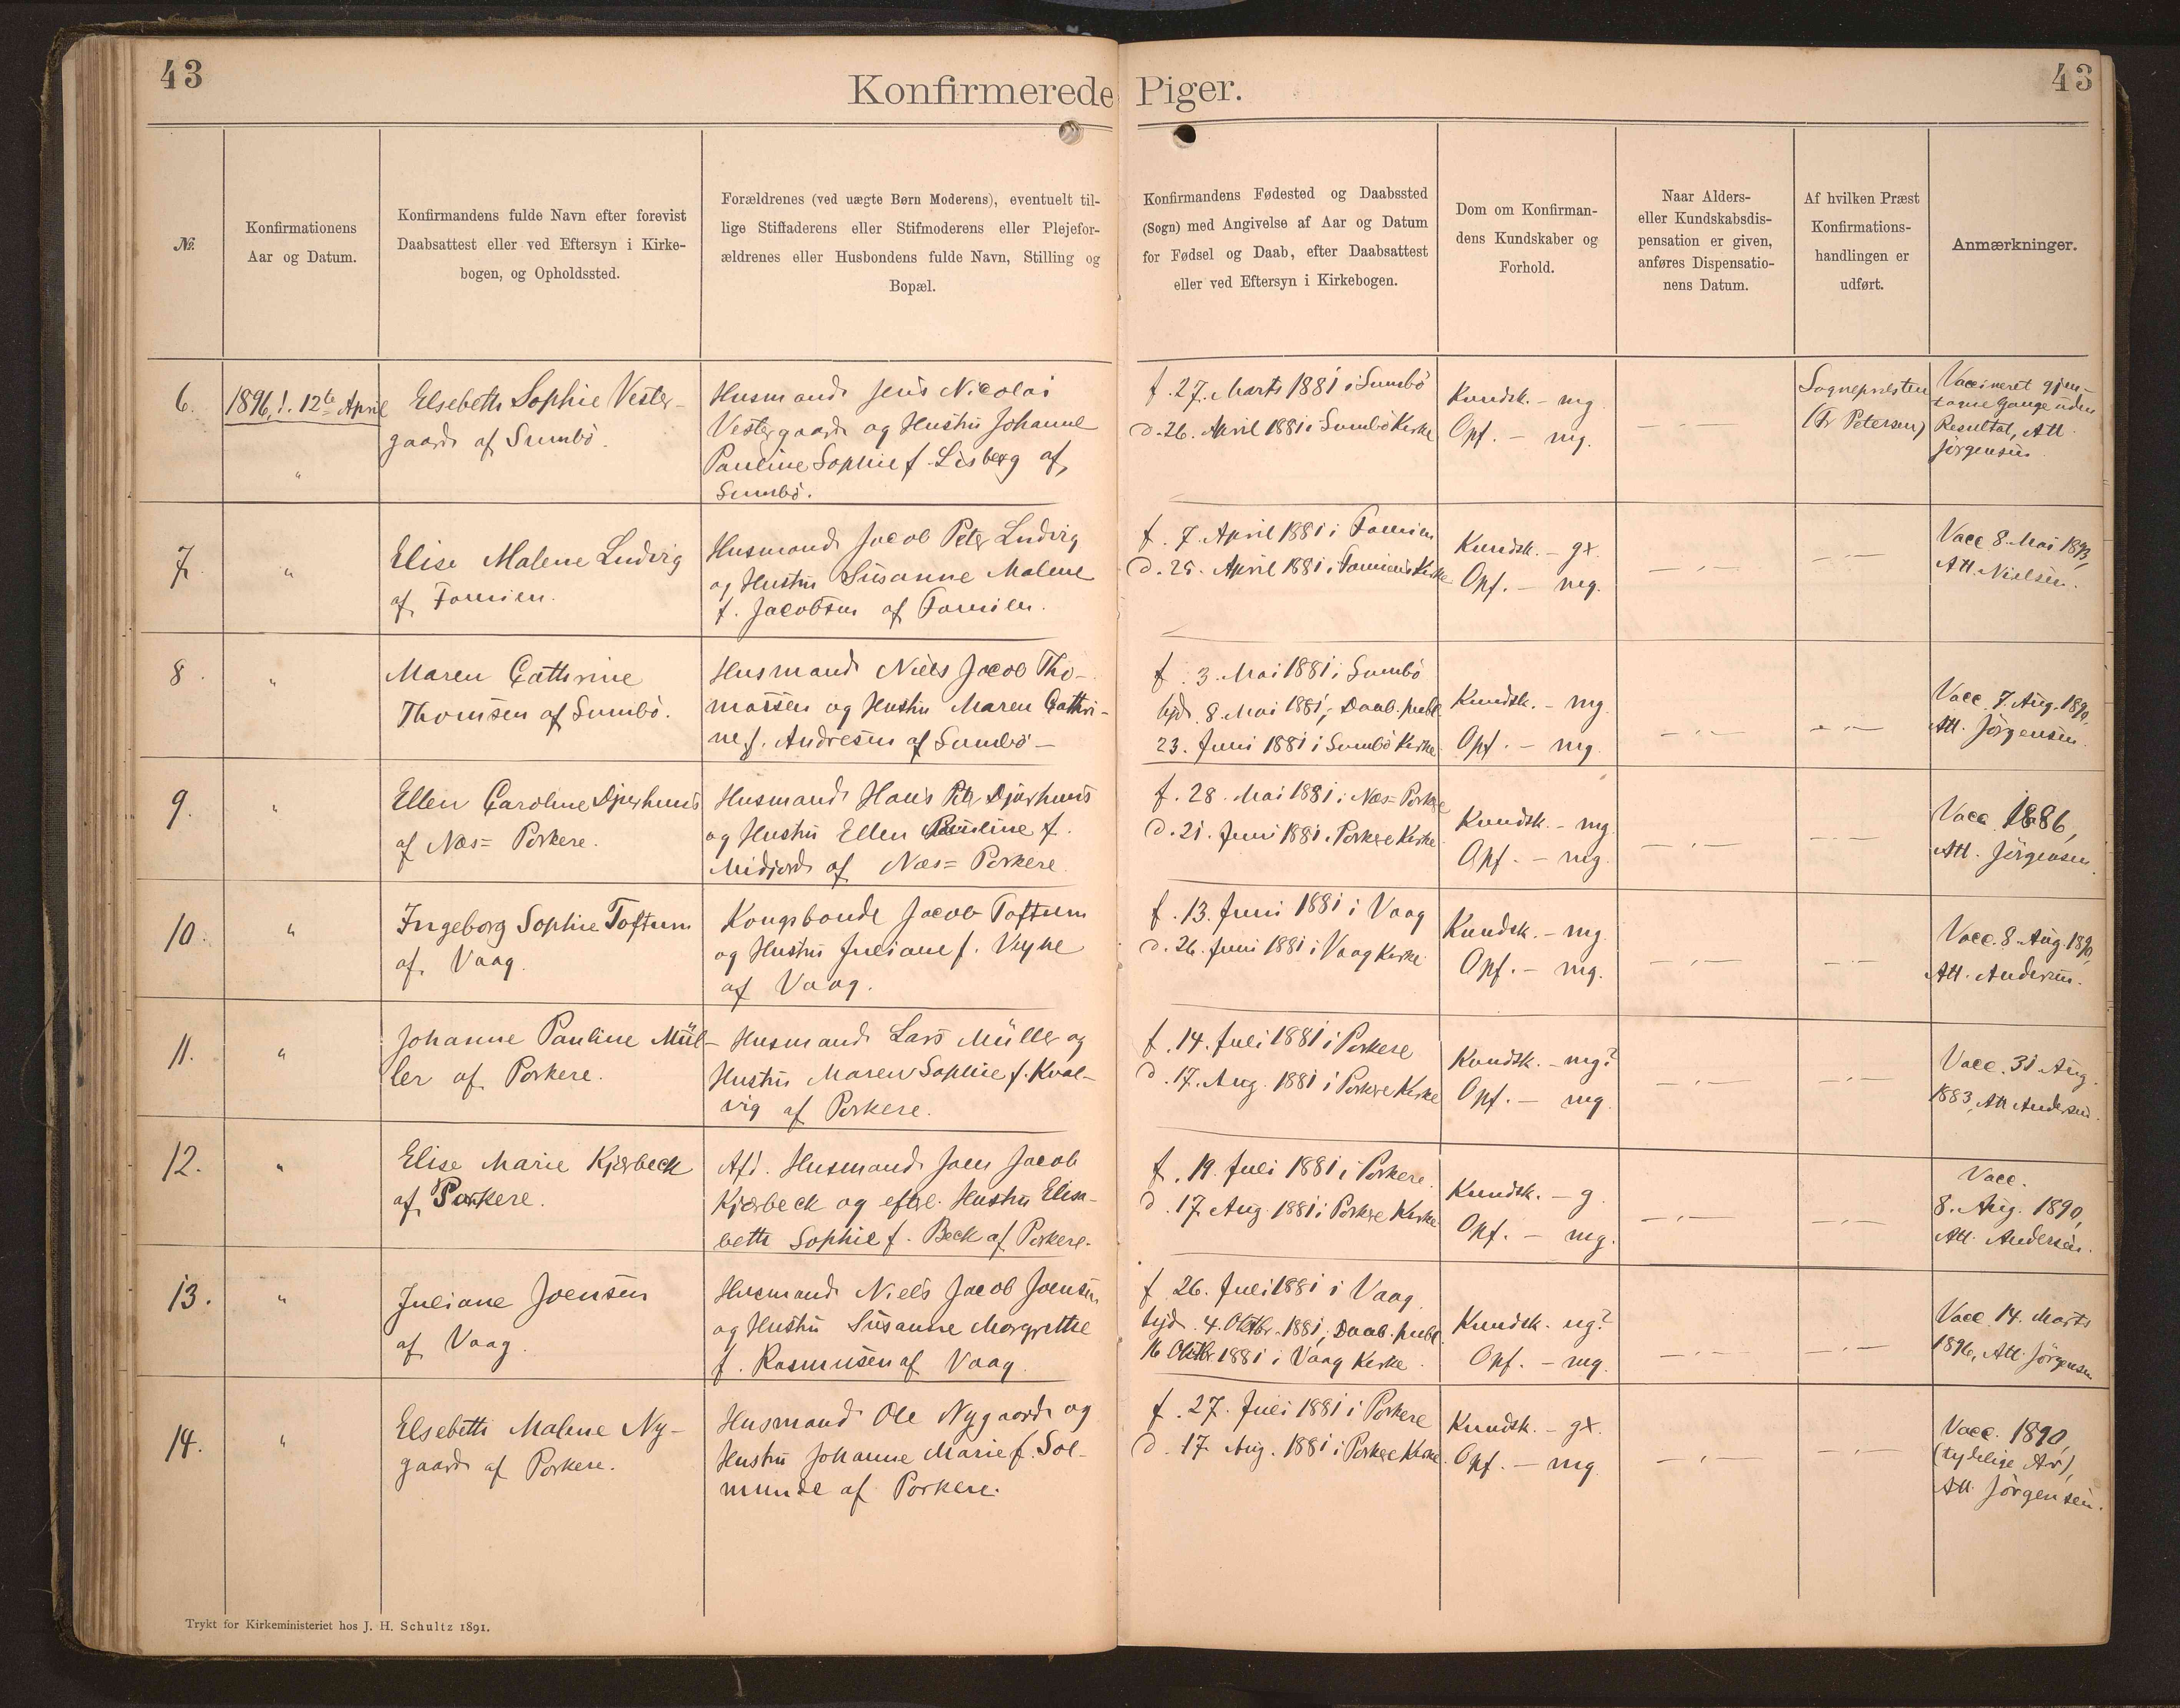 43
Konfirmerede Piger.
43
No.
Konfirmationens
Aar og Datum.
Konfirmandens fulde Navn efter forevist
Daabsattest eller ved Eftersyn i Kirke-
bogen, og Opholdssted.
Forældrenes (ved uægte Børn Moderens), eventuelt til-
lige Stiffaderens eller Stifmoderens eller Plejefor-
ældrenes eller Husbondens fulde Navn, Stilling og
Bopæl.
Konfirmandens Fødested og Daabssted
(Sogn) med Angivelse af Aar og Datum
for Fødsel og Daab, efter Daabsattest
eller ved Eftersyn i Kirkebogen.
Dom om Konfirman-
dens Kundskaber og
Forhold.
Naar Alders-
eller Kundskabsdis-
pensation er given,
anføres Dispensatio-
nens Datum.
Af hvilken Præst
Konfirmations-
handlingen er
udført.
Anmærkninger.
6.
1896, d. 12te April
"
Elsebeth Sophie Vester-
gaard af Sumbö.
Husmand Jens Nicolai
Vestergaard og Hustru Johanne
Pauline Sophie f. Lisberg af
Sumbö.
f. 27. Marts 1881 i Sumbö
d. 26. April 1881 i Sumbö Kirke
Kundsk. - mg
Opf. - mg.
— " —
Sognepræsten
(Fr Petersen)
Vaccineret gjen-
tagne Gange uden
Resultat, Att.
Jörgensen
7.
"
Elise Malene Ludvig
af Famien.
Husmand Jacob Peter Ludvig
og Hustru Susanne Malene
f. Jacobsen af Famien.
f. 7. April 1881 i Famien
d. 25. April 1881 i Famiens Kirke
Kundsk. - gx.
Opf. - mg.
— " —
— " —
Vacc 8. Mai 1893,
Att. Nielsen.
8.
"
Maren Cathrine
Thomsen af Sumbö.
Husmand Niels Jacob Tho-
massen og Hustru Maren Cathri-
ne f. Andresen af Sumbö —
f. 3. Mai 1881 i Sumbö
hjd. 8. Mai 1881; Daab. publ.
23. Juni 1881 i Sumbö Kirke.
Kundsk. - mg.
Opf. - mg.
— " —
— " —
Vacc. 7. Aug. 1890,
Att. Jörgensen.
9.
"
Ellen Caroline Djurhuus
af Næs= Porkere.
Husmand Hans Petr Djurhuus
og Hustru Ellen Pauline f.
Midjord af Næs= Porkere.
f. 28. Mai 1881 i Næs= Porkere
d. 21. Juni 1881 i Porkere Kirke.
Kundsk. - mg.
Opf. - mg.
— " —
— " —
Vacc 1886,
Att. Jörgensen.
10.
"
Ingeborg Sophie Toftum
af Vaag.
Kongsbonde Jacob Toftum
og Hustru Juliane f. Veyhe
af Vaag.
f. 13. Juni 1881 i Vaag
d. 26. Juni 1881 i Vaag Kirke.
Kundsk. - mg.
Opf. - mg.
— " —
— " —
Vacc. 8. Aug. 1890,
Att. Andersen.
11.
"
Johanne Pauline Mül-
ler af Porkere.
Husmand Lars Müller og
Hustru Maren Sophie f. Kval-
vig af Porkere.
f. 14. Juli 1881 i Porkere
d. 17. Aug. 1881 i Porkere Kirke
Kundsk. - mg?
Opf. - mg.
— " —
— " —
Vacc. 31. Aug.
1883, Att Andersen.
12.
"
Elise Marie Kjærbeck
af Porkere.
Afd. Husmand Joen Jacob
Kjærbeck og efterl. Hustru Elsa-
beth Sophie f. Beck af Porkere.
f. 19. Juli 1881 i Porkere.
d. 17. Aug. 1881 i Porkere Kirke
Kundsk. - g.
Opf. - mg.
— " —
— " —
Vacc.
8. Aug. 1890,
Att. Andersen.
13.
"
Juliane Joensen
af Vaag.
Husmand Niels Jacob Joensen
og Hustru Susanne Margrethe
f. Rasmusen af Vaag.
f. 26. Juli 1881 i Vaag.
hjd. 4. Oktbr. 1881; Daab. publ.
16 Oktbr 1881 i Vaag Kirke.
Kundsk. ug?
Opf. - mg.
— " —
— " —
Vacc 14. Marts
1896, Att. Jörgensen
14.
"
Elsebeth Malene Ny-
gaard af Porkere.
Husmand Ole Nygaard og
Hustru Johanne Marie f. Sol-
munde af Porkere.
f. 27. Juli 1881 i Porkere
d. 17. Aug. 1881 i Porkere Kirke.
Kundsk. - gx.
Opf. - mg.
— " —
— " —
Vacc. 1890,
(tydelige Ar),
Att. Jörgensen.
Trykt for Kirkeministeriet hos J. H. Schultz 1891.